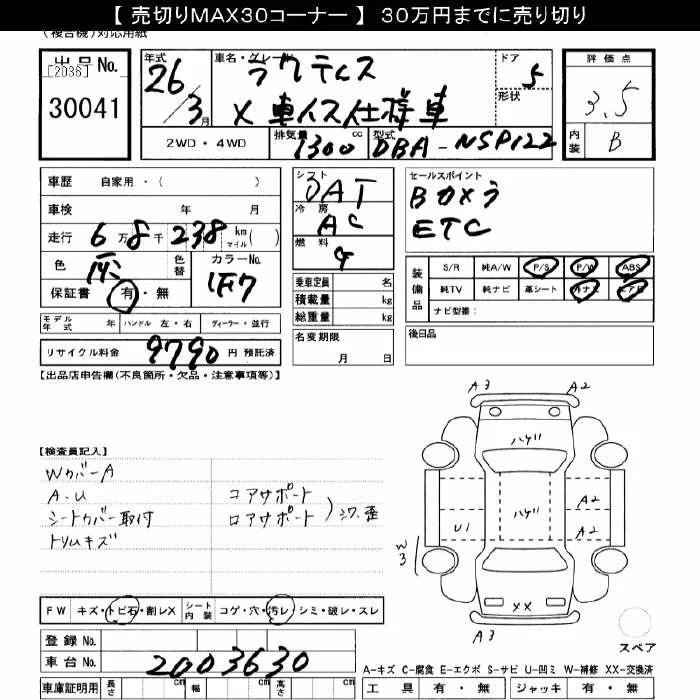 【 売切りMAX30コーナー 】 30万円までに売り切り
(複合機)対応用紙
出品No.
[2036]
30041
年式
26/3月
車名・グレード
ラクティス
X 車イス仕様車
ドア
5
形状
評価点
3.5
内装
B
2WD・4WD
排気量
1300cc
型式
DBA-NSP122
車歴 自家用・( )
車検 年 月
走行 6万8千238 km マイル( )
色
色替
カラーNo.
1F7
保証書 有・無
シフト
AT
冷房
AC
燃料
G
乗車定員 名
積載量 kg
総重量 kg
名変期限
月 日
セールスポイント
Bカメラ
ETC
装備品
S/R 純A/W P/S P/W ABS
純TV 純ナビ 革シート 外ナビ エアB
ナビ型番:
後日品
モデル年式 年 ハンドル 左・右 ディーラー・並行
リサイクル料金 9790 円 預託済
【出品店申告欄(不良箇所・欠品・注意事項等)】
【検査員記入】
WカバーA
A・U
シートカバー取付
トリムキズ
コアサポート
ロアサポート
シワ、歪
A3
A2
ハゲ
ハゲ
A2
A2
U1
W3
XX
A3
スペア
FW キズ・トビ石・割レX シート内装 コゲ・穴・汚レ シミ・破レ・スレ
登録 No.
車台 No. 2003630
車庫証明用 長さ cm 幅 cm 高さ cm
A-キズ C-腐食 E-エクボ S-サビ U-凹ミ W-補修 XX-交換済
工具 有・無 ジャッキ 有・無